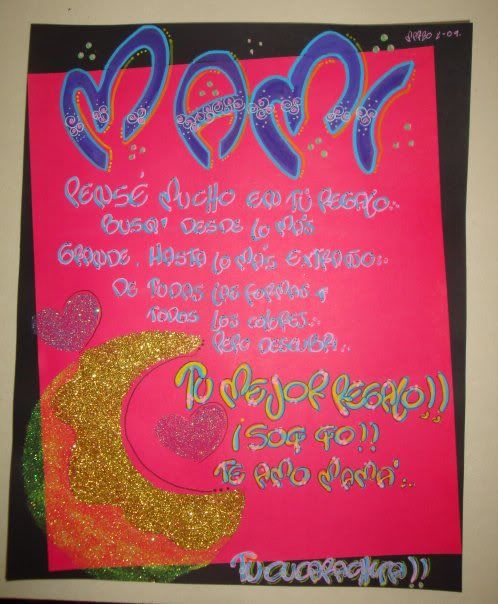 MAMI
PENSÉ MUCHO EN TÚ REGALO..
BUSQUÉ DESDE LO MÁS
GRANDE, HASTA LO MÁS EXTRAÑO..
DE TODAS LAS FORMAS Y
TODOS LOS COLORES..
PERO DESCUBRÍ..
TU MEJOR REGALO!!
¡SOY YO!!
TE AMO MAMÁ..
TU CUCARACHITA!!